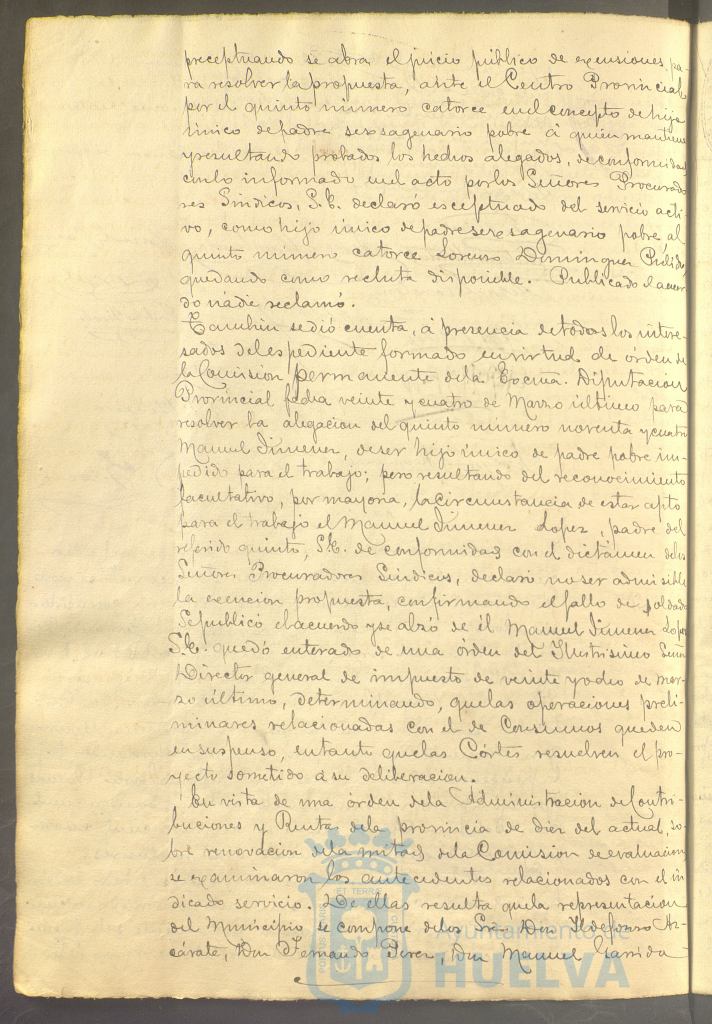 preceptuando se abra el juicio público de exenciones, pa-
ra resolver la propuesta, ante el Centro Provincial
por el quinto número catorce en el concepto de hijo
único de padre sexsagenario pobre á quien mantiene
y resultando probados los hechos alegados, de conformidad
con lo informado en el acto por los Señores Procurado-
res Sindicos, S.E. declaró esceptuado del servicio acti-
vo, como hijo único de padre sexsagenario pobre, al
quinto número catorce Lorenzo Dominguez Pulido,
quedando como recluta disponible. Publicado el acuer-
do nadie reclamó.
Tambien se dió cuenta, á presencia de todos los intere-
sados del espediente formado en virtud de órden de
la Comision permanente de la Excma. Diputacion
Provincial fecha veinte y cuatro de Marzo último para
resolver la alegacion del quinto número noventa y cuatro
Manuel Jimenez, de ser hijo único de padre pobre im-
pedido para el trabajo; pero resultando del reconocimiento
facultativo, por mayoria, la circunstancia de estar apto
para el trabajo el Manuel Jimenez Lopez, padre del
referido quinto, S.E. de conformidad con el dictámen de los
Señores Procuradores Sindicos, declaró no ser admisible
la exencion propuesta, confirmando el fallo de soldado
Se publicó el acuerdo y se alzó de él Manuel Jimenez Lopez
S.E. quedó enterado de una órden del Ilustrisimo Señor
Director general de impuesto de veinte y ocho de mar-
zo último, determinando, que las operaciones preli-
minares relacionadas con el de Consumos queden
en suspenso, en tanto que las Córtes resuelven el pro-
yecto sometido á su deliberacion.
En vista de una órden de la Administracion de Contri-
buciones y Rentas de la provincia de diez del actual, so-
bre renovacion de la mitad de la Comision de evaluacion
se examinaron los antecedentes relacionados con el in-
dicado servicio. De ellas resulta que la representacion
del Municipio se compone de los Sres. Don Ildefonso Az-
cárate, Don Fernando Perez, Don Manuel Garrido
Ayuntamiento de
HUELVA